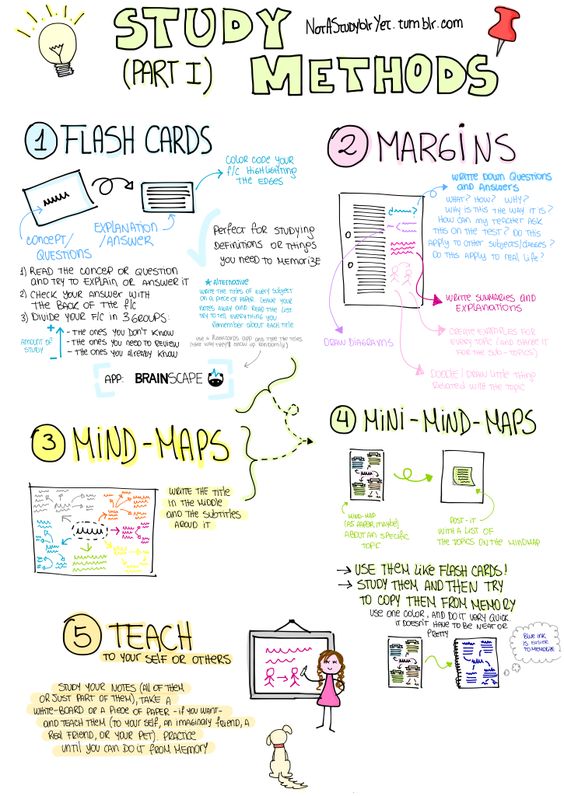 STUDY
NotAStudyblrYet.tumblr.com
(PART I)
METHODS
1 FLASH CARDS
COLOR CODE YOUR
F/C HIGHLIGHTING
THE EDGES
CONCEPT/
QUESTIONS
EXPLANATION
/ANSWER
Perfect for studying
definitions or things
you need to memorize
1) READ THE CONCEP OR QUESTION
AND TRY TO EXPLAIN OR ANSWER IT
2) CHECK YOUR ANSWER WITH
THE BACK OF THE F/C
3) DIVIDE YOUR F/C IN 3 GROUPS:
- THE ONES YOU DON'T KNOW
- THE ONES YOU NEED TO REVIEW
- THE ONES YOU ALREADY KNOW
+
-
AMOUNT
OF STUDY
★ Alternative
WRITE THE TITLES OF EVERY SUBJECT
ON A PIECE OF PAPER. LEAVE YOUR
NOTES AWAY AND READ THE LIST
TRY TO TELL EVERYTHING YOU
REMEMBER ABOUT EACH TITLE
APP: BRAINSCAPE
2 MARGINS
WRITE DOWN QUESTIONS
AND ANSWERS
WHAT? HOW? WHY?
WHY IS THIS THE WAY IT IS?
HOW CAN MY TEACHER ASK
THIS ON THE TEST? DO THIS
APPLY TO OTHER SUBJECTS/CLASSES?
DO THIS APPLY TO REAL LIFE?
WRITE SUMMARIES AND
EXPLANATIONS
CREATE EXAMPLES FOR
EVERY TOPIC (AND
FOR
THE SUB-TOPICS)
DRAW DIAGRAMS
DOODLE / DRAW LITTLE THING
RELATED WITH THE TOPIC
3 MIND-MAPS
WRITE THE TITLE
IN THE MIDDLE
AND THE SUBTITLES
AROUD IT
4 MINI-MIND-MAPS
MIND-MAP
(A5 PAPER MAYBE)
ABOUT AN SPECIFIC
TOPIC
POST-IT
WITH A LIST OF
THE TOPICS ON THE MINDMAP
→ USE THEM LIKE FLASH CARDS!
→ STUDY THEM AND THEN TRY
TO COPY THEM FROM MEMORY
USE ONE COLOR, AND DO IT VERY QUICK
IT DOESN'T HAVE TO BE NEAT OR
PRETTY
Blue ink
is easier
to memorize
5 TEACH
TO YOUR SELF OR OTHERS
STUDY YOUR NOTES (ALL OF THEM
OR JUST PART OF THEM), TAKE A
WHITE-BOARD OR A PIECE OF PAPER -IF YOU WANT-
AND TEACH THEM (TO YOUR SELF, AN IMAGINARY FRIEND, A
REAL FRIEND, OR YOUR PET). PRACTICE
UNTIL YOU CAN DO IT FROM MEMORY